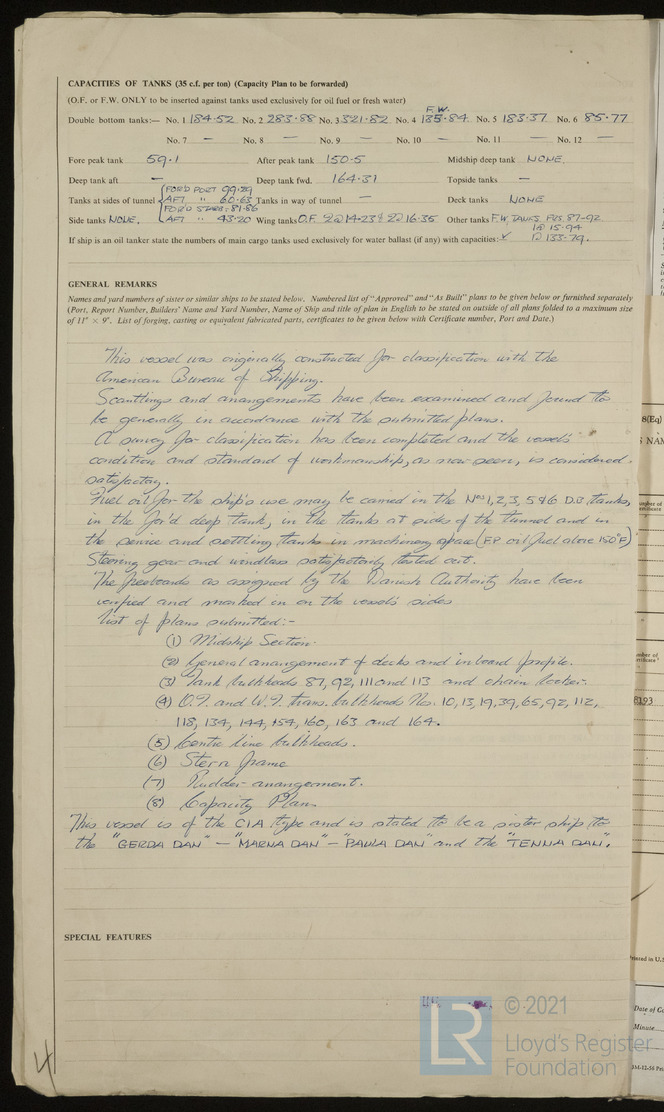 CAPACITIES OF TANKS (35 c.f. per ton) (Capacity Plan to be forwarded)
(O.F. or F.W. ONLY to be inserted against tanks used exclusively for oil fuel or fresh water)
F.W.
Double bottom tanks:— No. 1 184·52 No. 2 283·88 No. 3 321·82 No. 4 135·84 No. 5 183·37 No. 6 85·77
No. 7 — No. 8 — No. 9 — No. 10 — No. 11 — No. 12 —
Fore peak tank 59·1 After peak tank 150·5 Midship deep tank NONE
Deep tank aft — Deep tank fwd. 164·31 Topside tanks —
FOR'D PORT 99·29
Tanks at sides of tunnel AFT " 60·63 Tanks in way of tunnel — Deck tanks NONE
FOR'D STARB. 81·86
Side tanks NONE. AFT " 43·20 Wing tanks O.F. 2@14·23 & 2@16·35 Other tanks F.W. TANKS FRS. 87-92
1@ 15·94
If ship is an oil tanker state the numbers of main cargo tanks used exclusively for water ballast (if any) with capacities: 1@ 133·79.
GENERAL REMARKS
Names and yard numbers of sister or similar ships to be stated below. Numbered list of "Approved" and "As Built" plans to be given below or furnished separately
(Port, Report Number, Builders' Name and Yard Number, Name of Ship and title of plan in English to be stated on outside of all plans folded to a maximum size
of 11" × 9". List of forging, casting or equivalent fabricated parts, certificates to be given below with Certificate number, Port and Date.)
This vessel was originally constructed for classification with the
American Bureau of Shipping.
Scantlings and arrangements have been examined and found to
be generally in accordance with the submitted plans.
A survey for classification has been completed and the vessel's
condition and standard of workmanship, as now seen, is considered
satisfactory.
Fuel oil for the ship's use may be carried in the Nos 1, 2, 3, 5 & 6 D.B. tanks,
in the for'd deep tank, in the tanks at sides of the tunnel and in
the service and settling tanks in machinery space (F.P. oil fuel above 150°F)
Steering gear and windlass satisfactorily tested out.
The freeboards as assigned by the Danish Authority have been
verified and marked in on the vessel's sides
List of plans submitted:-
(1) Midship Section.
(2) General arrangement of decks and inboard profile.
(3) Tank bulkheads 87, 92, 111 and 113 and chain locker.
(4) O.T. and W.T. trans. bulkheads Nos. 10, 13, 19, 39, 65, 92, 112,
118, 134, 144, 154, 160, 163 and 164.
(5) Centre line bulkheads.
(6) Stern frame
(7) Rudder arrangement.
(8) Capacity Plan.
This vessel is of the C1A type and is stated to be a sister ship to
the "GERDA DAN" — "MARNA DAN" — "PAULA DAN" and the "TENNA DAN".
SPECIAL FEATURES
4
LR
© 2021
Lloyd's Register
Foundation
8(Eq)
NAM
8193
Printed in U.S
Date of Co
Minute